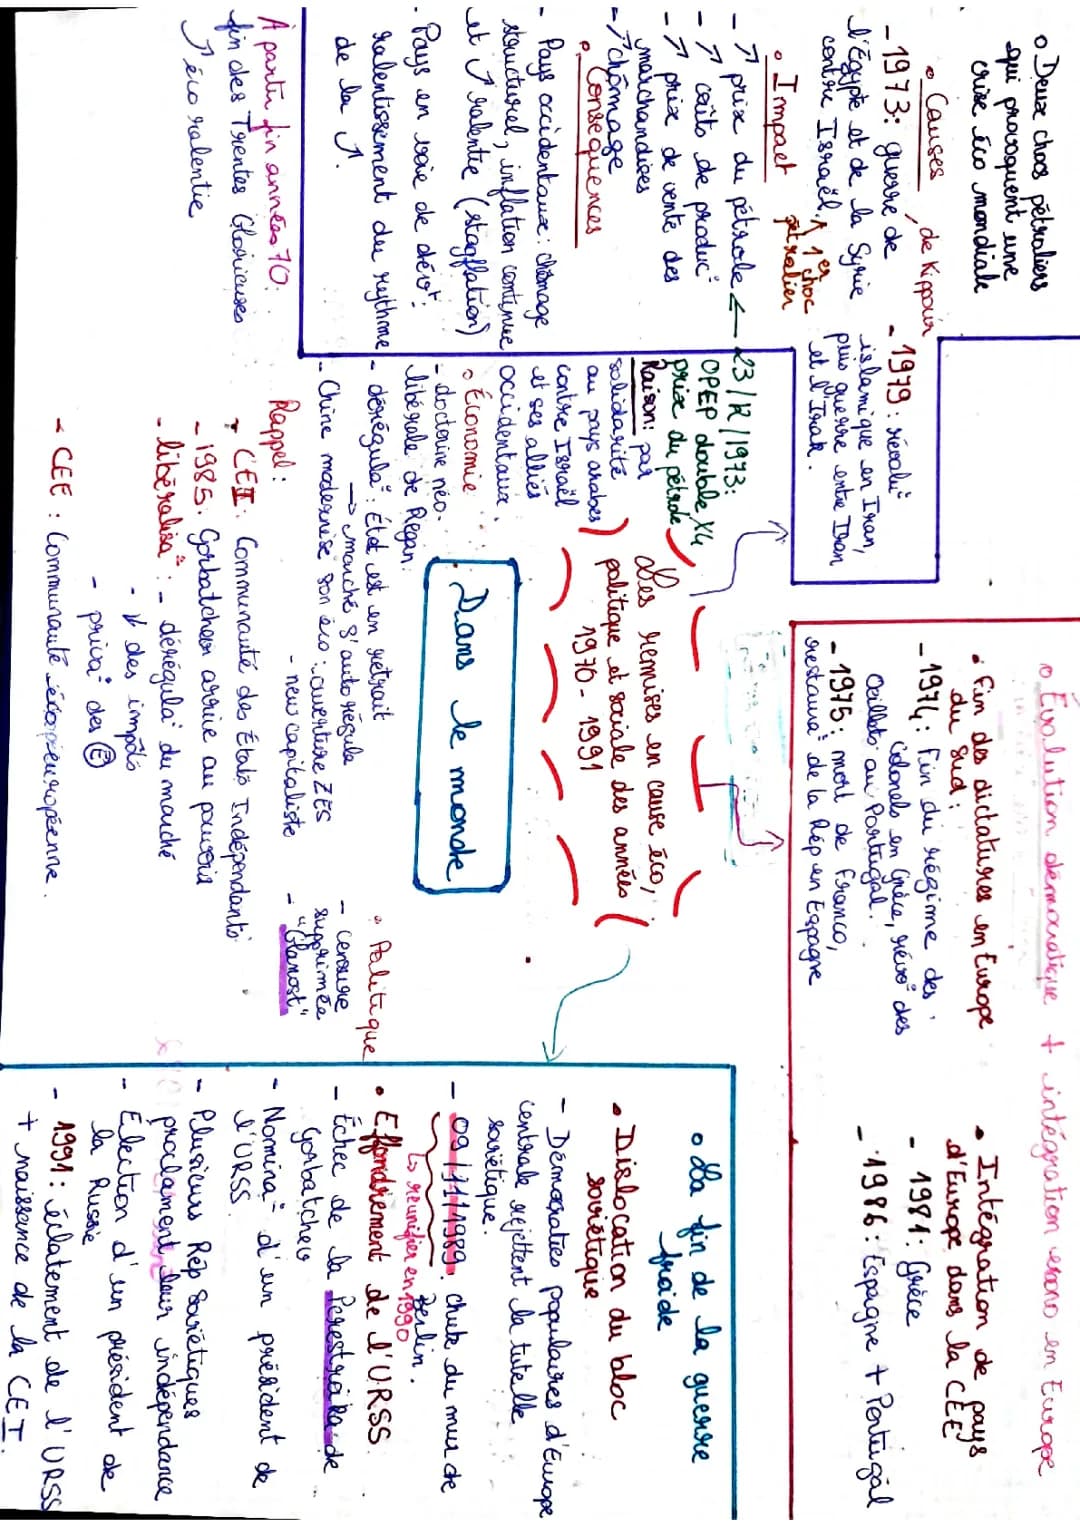 Les remises en cause éco,
politique et sociale des années
1970 - 1991
Dans le monde
o Deux chocs pétroliers
qui provoquent une
crise éco mondiale
• Causes
- 1973 : guerre de
de Kippour
l'Égypte et de la Syrie
contre Israël.
1er choc
pétrolier
- 1979 : révolu°
islamique en Iran,
puis guerre entre Iran
et l'Irak.
• Impact
- ↗ prix du pétrole ←
- ↗ coûts de produc°
- ↗ prix de vente des
marchandises
- ↗ chômage
• Conséquences
- Pays occidentaux : chômage
structurel, inflation continue
et ↗ ralentie (stagflation)
- Pays en voie de dévt :
ralentissement du rythme
de la ↗.
A partir fin années 70 :
fin des Trentes Glorieuses
↗ éco ralentie
OPEP double x4
prix du pétrole
Raison : par
solidarité
au pays arabes
contre Israël
et ses alliés
occidentaux.
o Économie
- doctrine néo-
libérale de Régan.
- dérégula° : État est en retrait
→ marché s'auto régule
- Chine modernise son éco : ouverture ZES
- new capitaliste
• Politique
- censure
supprimée
- "Glanost"
Rappel :
• CEI : Communauté des États Indépendants
- 1985 : Gorbatchev arrive au pouvoir
- libéralisa° : - dérégula° du marché
- ↓ des impôts
- priva° des (E)
- CEE : Communauté européenne.
o Évolution démocratique + intégration en Europe
• Fin des dictatures en Europe
du Sud :
- 1974 : Fin du régime des
Colonels en Grèce, révo° des
Œillets au Portugal.
- 1975 : mort de Franco,
restaura° de la Rép en Espagne
• Intégration de pays
d'Europe dans la CEE
- 1981 : Grèce
- 1986 : Espagne + Portugal
o La fin de la guerre
froide
• Dislocation du bloc
soviétique
- Démocraties populaires d'Europe
centrale rejettent la tutelle
soviétique.
- 09/11/1989 : chute du mur de
Berlin.
↳ réunifier en 1990
• Effondrement de l'URSS
- Échec de la Perestroïka de
Gorbatchev
- Nomina° d'un président de
l'URSS
- Plusieurs Rép Soviétiques
proclament leur indépendance
- Élection d'un président de
la Russie
- 1991 : éclatement de l'URSS
+ naissance de la CEI.